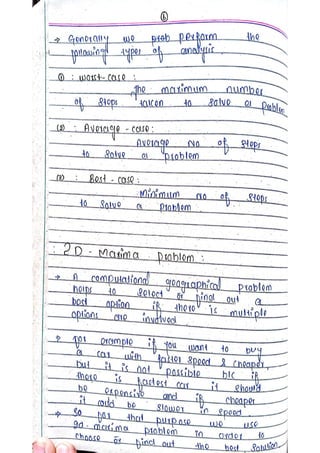 6
→ Generally we prob perform the
following types of analysis.
(i) : worst-case :
The maximum number
of steps taken to solve a problem
(ii) : Average - case :
Average no of steps
to solve a problem
(iii) : Best - case :
Minimum no of steps
to solve a problem
2D - Maxima problem :
→ A computational geographical problem
helps to select or find out a
best option if there is multiple
options are involved.
→ for example if you want to buy
a car with faster speed & cheaper,
but it is not possible b/c if
there is fastest car it should
be expensive and if cheaper
it could be slower in speed.
→ So for that purpose we use
2d-maxima problem in order to
choose or find out the best solution